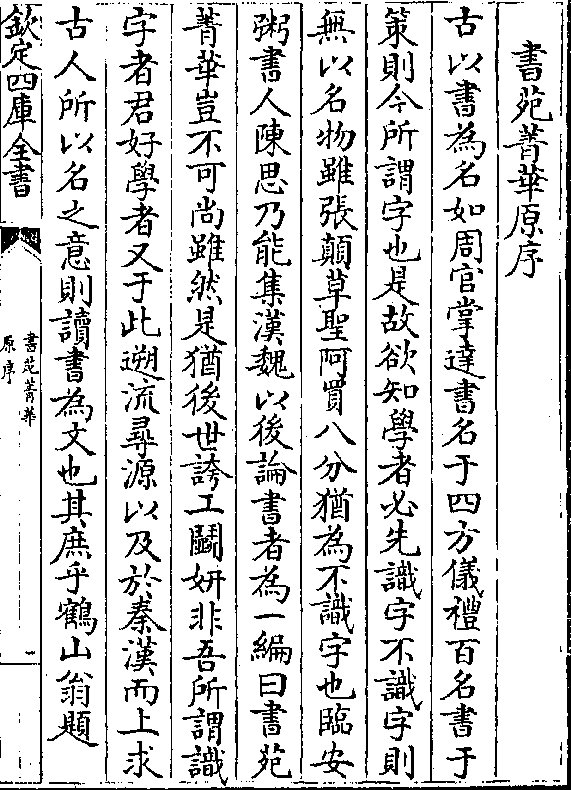 書苑菁華原序
古以書為名如周官掌達書名于四方儀禮百名書于
策則今所謂字也是故欲知學者必先識字不識字則
無以名物雖張顛草聖阿買八分猶為不識字也臨安
粥書人陳思乃能集漢魏以後論書者為一編曰書苑
菁華豈不可尚雖然是猶後世誇工鬭妍非吾所謂識
字者君好學者又于此遡流尋源以及於秦漢而上求
古人所以名之意則讀書為文也其庶乎鶴山翁題
欽定四庫全書
書苑菁華
原序
一